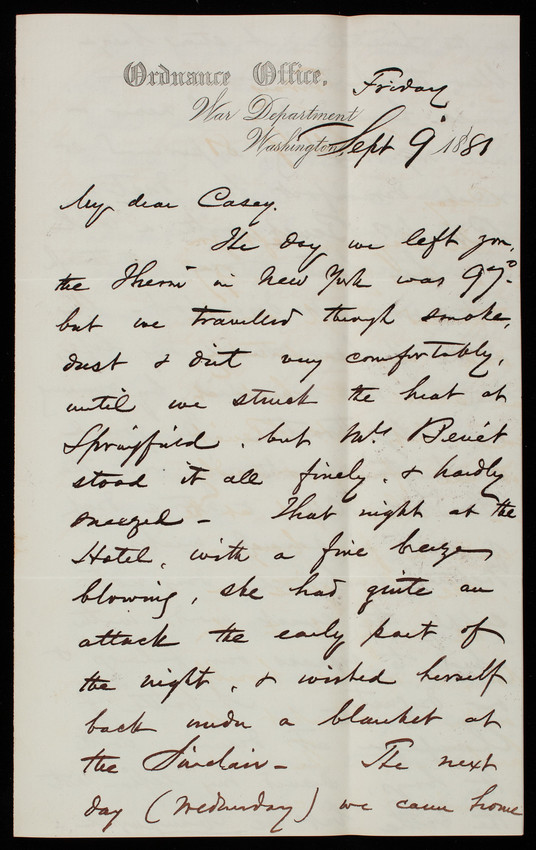 Ordnance Office,
War Department
Washington,
Friday
Sept 9 1881
My dear Casey.
The day we left you,
the Therm in New York was 97°.
but we travelled through smoke,
dust & dirt very comfortably,
until we struck the heat at
Springfield, but Mrs Benét
stood it all finely, & hardly
sneezed - That night at the
Hotel, with a fine breeze
blowing, she had quite an
attack the early part of
the night, & wished herself
back under a blanket at
the Sinclair - The next
day (Wednesday) we came home